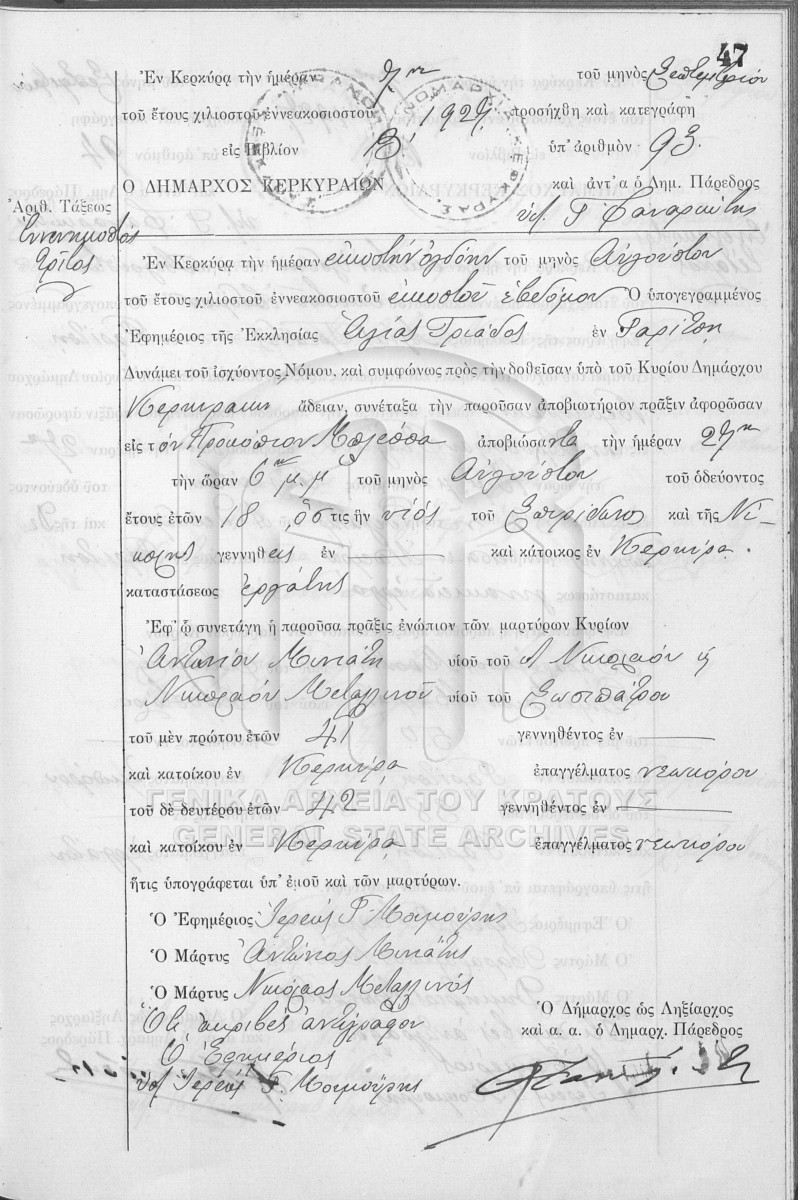 47
Ἐν Κερκύρᾳ τὴν ἡμέραν 9ην τοῦ μηνὸς Σεπτεμβρίου
τοῦ ἔτους χιλιοστοῦ ἐννεακοσιοστοῦ 1927 προσήχθη καὶ κατεγράφη
εἰς Βιβλίον Β' ὑπ' ἀριθμὸν 93.
Ο ΔΗΜΑΡΧΟΣ ΚΕΡΚΥΡΑΙΩΝ καὶ ἀντ' α ὁ Δημ. Πάρεδρος
Ἀριθ. Τάξεως
Ἐννενηκοστὸς
τρίτος
Ἐν Κερκύρᾳ τὴν ἡμέραν εἰκοστὴν ὀγδόην τοῦ μηνὸς Αὐγούστου
τοῦ ἔτους χιλιοστοῦ ἐννεακοσιοστοῦ εἰκοστοῦ ἑβδόμου Ὁ ὑπογεγραμμένος
Ἐφημέριος τῆς Ἐκκλησίας Ἁγίας Τριάδος ἐν Γαρίτσῃ
Δυνάμει τοῦ ἰσχύοντος Νόμου, καὶ συμφώνως πρὸς τὴν δοθεῖσαν ὑπὸ τοῦ Κυρίου Δημάρχου
ἄδειαν, συνέταξα τὴν παροῦσαν ἀποβιωτήριον πρᾶξιν ἀφορῶσαν
εἰς τὸν Προκόπιον Μπλέσσα ἀποβιώσαντα τὴν ἡμέραν 27ην
τὴν ὥραν 6ην μ.μ τοῦ μηνὸς Αὐγούστου τοῦ ὁδεύοντος
ἔτους ἐτῶν 18, ὅστις ἦν υἱὸς τοῦ Σπυρίδωνος καὶ τῆς Νί-
κης γεννηθεὶς ἐν καὶ κάτοικος ἐν Κερκύρᾳ.
καταστάσεως ἐργάτης
Ἐφ' ᾧ συνετάγη ἡ παροῦσα πρᾶξις ἐνώπιον τῶν μαρτύρων Κυρίων
Ἀντωνίου Μινιάτη υἱοῦ τοῦ Νικολάου ᾗ
Νικολάου Μεταλληνοῦ υἱοῦ τοῦ Σωσιπάτρου
τοῦ μὲν πρώτου ἐτῶν 41 γεννηθέντος ἐν
καὶ κατοίκου ἐν Κερκύρᾳ ἐπαγγέλματος νεωκόρου
τοῦ δὲ δευτέρου ἐτῶν 42 γεννηθέντος ἐν
καὶ κατοίκου ἐν Κερκύρᾳ ἐπαγγέλματος νεωκόρου
ἥτις ὑπογράφεται ὑπ' ἐμοῦ καὶ τῶν μαρτύρων.
Ὁ Ἐφημέριος Ἱερεὺς Γ. Μαμούρης
Ὁ Μάρτυς Ἀντώνιος Μινιάτης
Ὁ Μάρτυς Νικόλαος Μεταλληνός
Ὅτι ἀκριβὲς ἀντίγραφον
Ὁ Ἐφημέριος
Ἱερεὺς Γ. Μαμούρης
Ὁ Δήμαρχος ὡς Ληξίαρχος
καὶ α. α. ὁ Δημαρχ. Πάρεδρος
ΓΕΝΙΚΑ ΑΡΧΕΙΑ ΤΟΥ ΚΡΑΤΟΥΣ
GENERAL STATE ARCHIVES